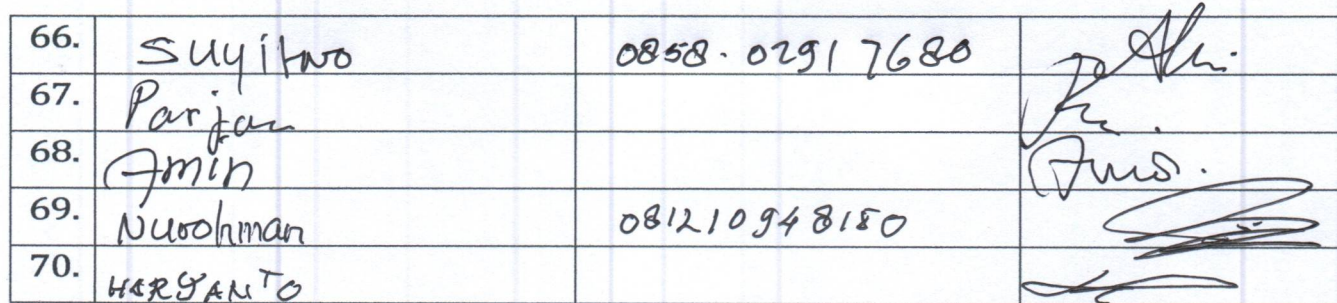 66. Suyitno 0858.02917680
67. Parjan
68. Amin
69. Nurohman 081210948180
70. HARYANTO